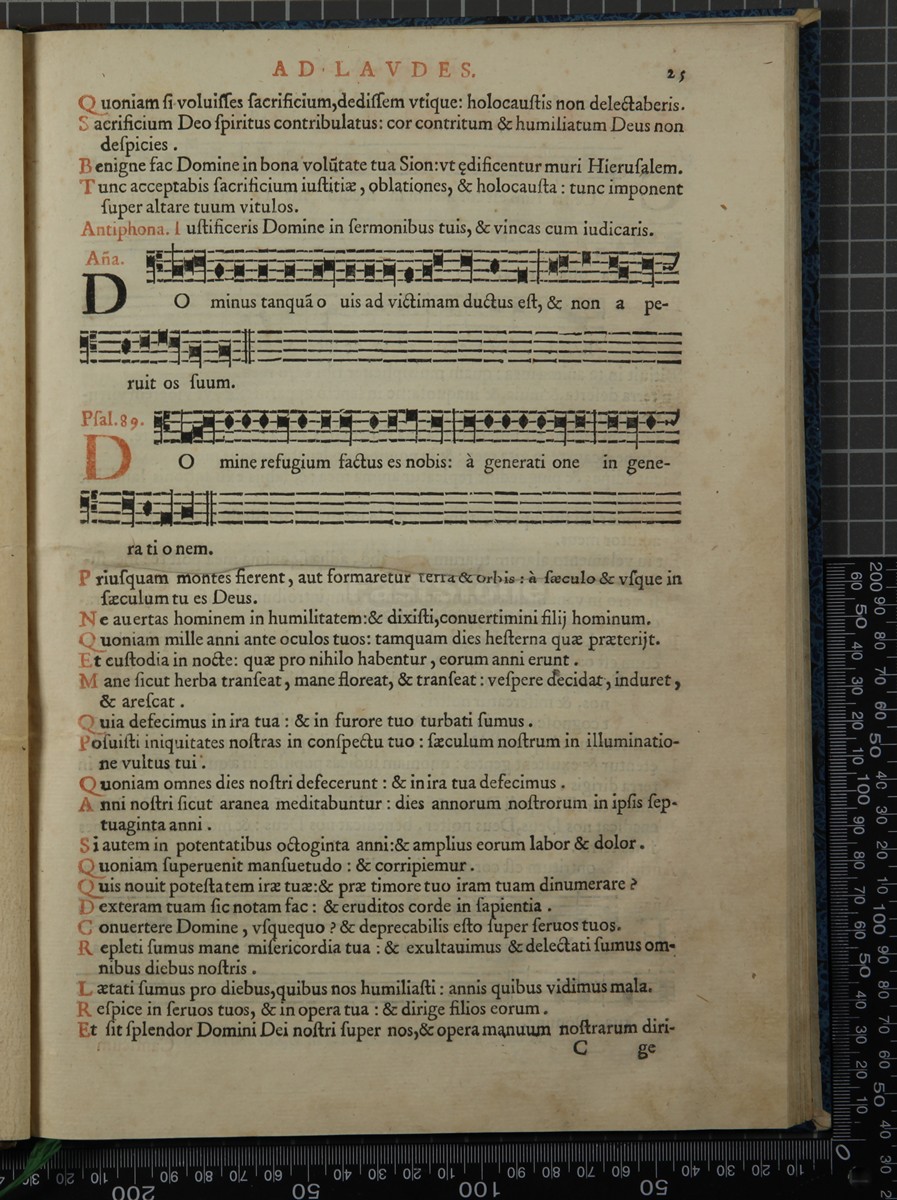 AD LAVDES. 25
Quoniam ſi voluiſſes ſacrificium,dediſſem vtique: holocauſtis non delectaberis.
Sacrificium Deo ſpiritus contribulatus: cor contritum & humiliatum Deus non
deſpicies .
Benigne fac Domine in bona volūtate tua Sion:vt ędificentur muri Hieruſalem.
Tunc acceptabis ſacrificium iuſtitiæ, oblationes, & holocauſta : tunc imponent
ſuper altare tuum vitulos.
Antiphona. Iuſtificeris Domine in ſermonibus tuis, & vincas cum iudicaris.
Aña.
DO minus tanquã o uis ad victimam ductus eſt, & non a pe-
ruit os ſuum.
Pſal.89.
DO mine refugium factus es nobis: à generati one in gene-
ra ti o nem.
Priuſquam montes fierent, aut formaretur terra & orbis : à ſæculo & vſque in
ſæculum tu es Deus.
Ne auertas hominem in humilitatem:& dixiſti,conuertimini filij hominum.
Quoniam mille anni ante oculos tuos: tamquam dies heſterna quæ præterijt.
Et cuſtodia in nocte: quæ pro nihilo habentur, eorum anni erunt .
Mane ſicut herba tranſeat, mane floreat, & tranſeat : veſpere decidat, induret,
& areſcat .
Quia defecimus in ira tua : & in furore tuo turbati ſumus .
Poſuiſti iniquitates noſtras in conſpectu tuo : ſæculum noſtrum in illuminatio-
ne vultus tui .
Quoniam omnes dies noſtri defecerunt : & in ira tua defecimus .
Anni noſtri ſicut aranea meditabuntur : dies annorum noſtrorum in ipſis ſep-
tuaginta anni .
Si autem in potentatibus octoginta anni:& amplius eorum labor & dolor .
Quoniam ſuperuenit manſuetudo : & corripiemur .
Quis nouit poteſtatem iræ tuæ:& præ timore tuo iram tuam dinumerare ?
Dexteram tuam ſic notam fac : & eruditos corde in ſapientia .
Conuertere Domine, vſquequo ? & deprecabilis eſto ſuper ſeruos tuos.
Repleti ſumus mane miſericordia tua : & exultauimus & delectati ſumus om-
nibus diebus noſtris .
Lætati ſumus pro diebus,quibus nos humiliaſti : annis quibus vidimus mala.
Reſpice in ſeruos tuos, & in opera tua : & dirige filios eorum .
Et ſit ſplendor Domini Dei noſtri ſuper nos,& opera manuum noſtrarum diri-
C ge